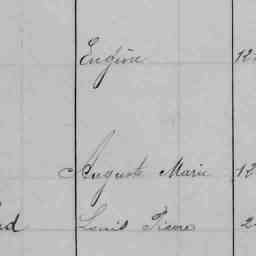 Eugène 12
Auguste Marie 12
Louis Pierre 2